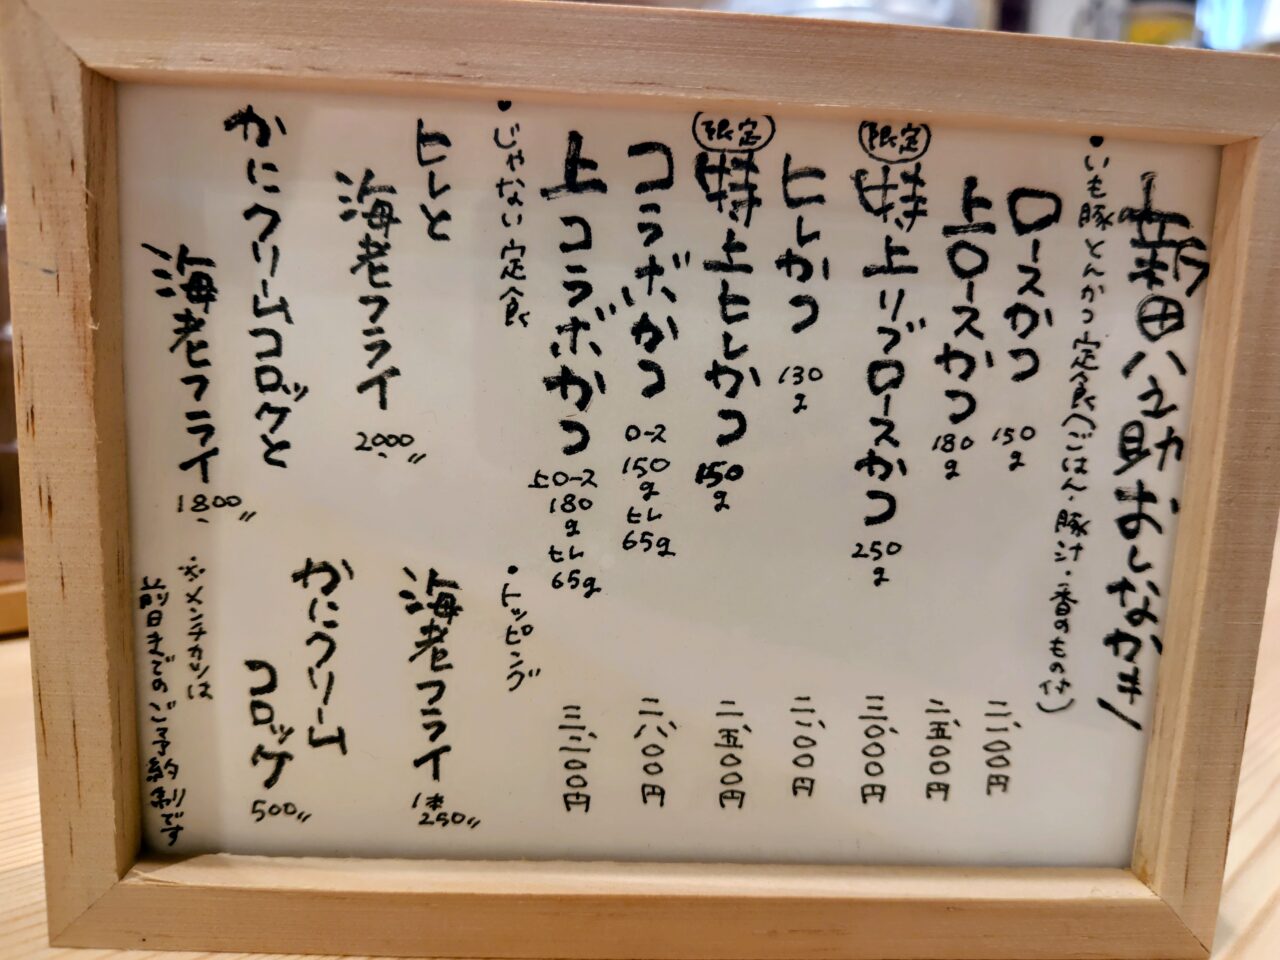 新田八之助おしながき
・いも豚とんかつ定食(ごはん・豚汁・香のもの付)
ロースかつ 150g 二、一〇〇円
上ロースかつ 180g 二、五〇〇円
限定 特上リブロースかつ 250g 三、〇〇〇円
ヒレかつ 130g 二、一〇〇円
限定 特上ヒレかつ 150g 二、五〇〇円
コラボかつ ロース150g ヒレ65g 二、八〇〇円
上コラボかつ 上ロース180g ヒレ65g 三、二〇〇円
・じゃない定食
ヒレと
海老フライ 2,000〃
かにクリームコロッケと
海老フライ 1,800〃
・トッピング
海老フライ 1本 250〃
かにクリーム
コロッケ 500〃
※メンチカツは
前日までのご予約制です